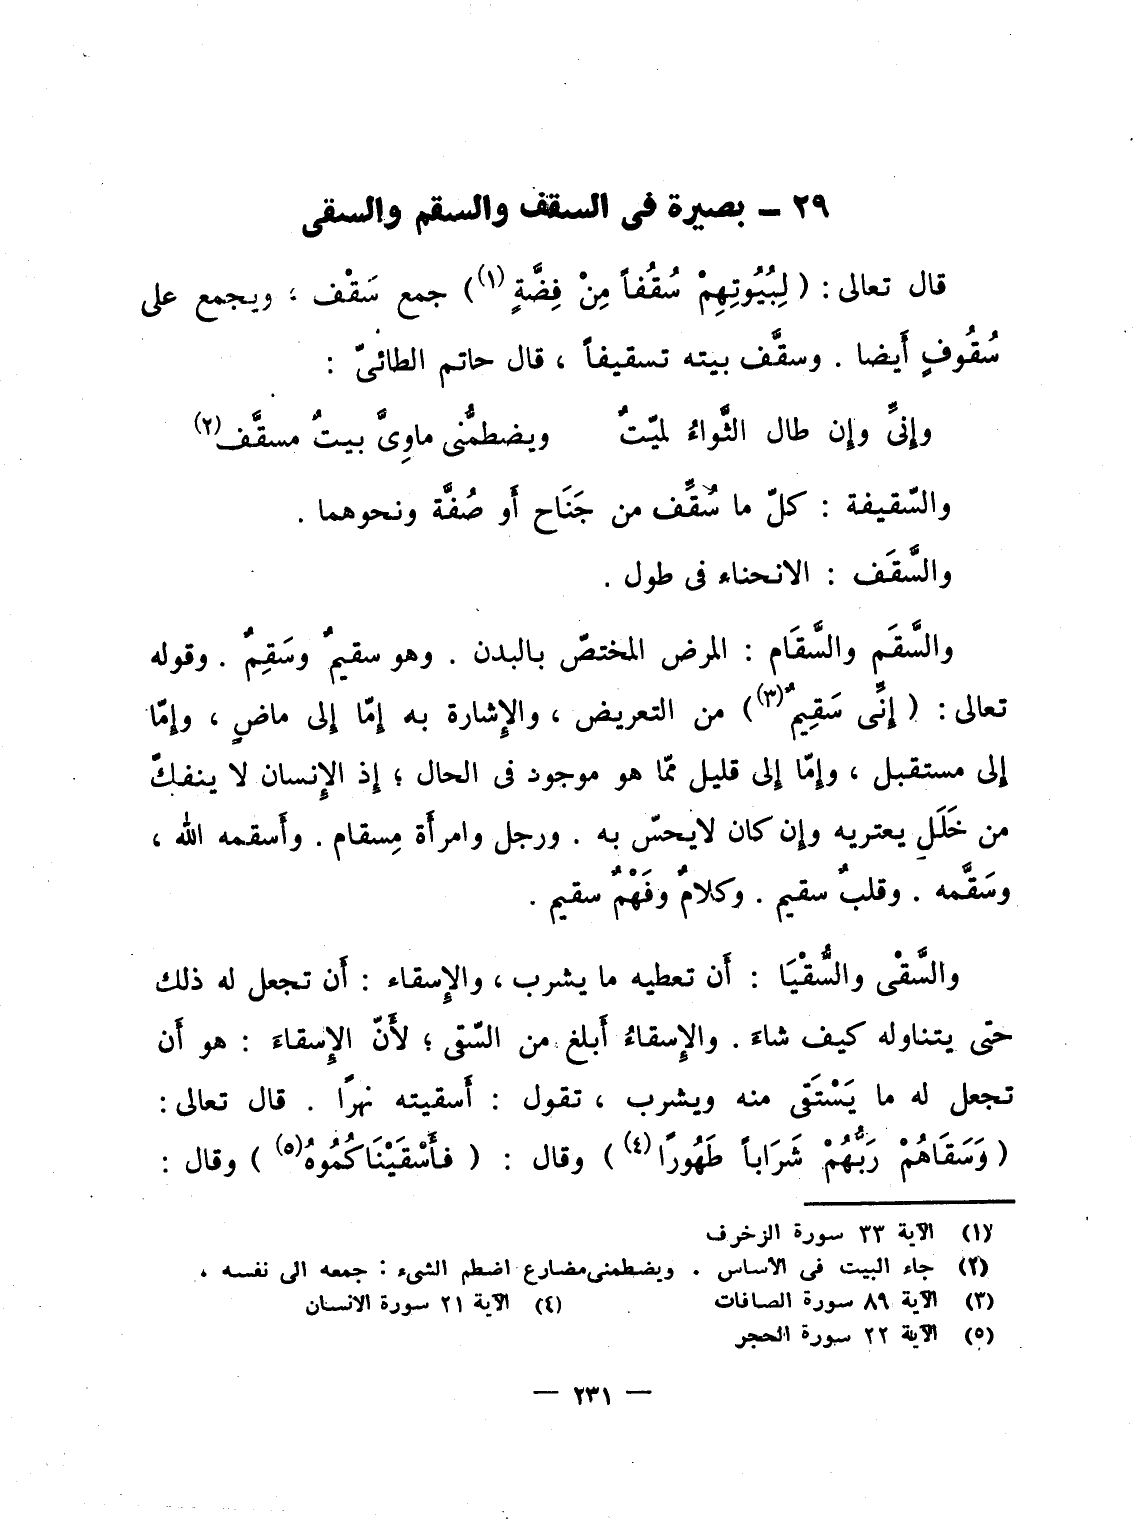 ٢٩ ــ بصيرة فى السقف والسقم والسقى
قال تعالى : ( لِبُيُوتِهِمْ سُقُفاً مِنْ فِضَّةٍ (١) ) جمع سَقْف ؛ ويجمع على
سُقُوفٍ أَيضا . وسقَّف بيته تسقيفاً ، قال حاتم الطائىّ :
وإِنىِّ وإِن طال الثَّواءُ لميّتٌ ويضطمُّنى ماوِىَّ بيتٌ مسقَّف (٢)
والسّقيفة : كلّ ما سُقِّف من جَنَاح أَو صُفَّة ونحوهما .
والسَّقَف : الانحناء فى طول .
والسَّقَم والسَّقَام : المرض المختصّ بالبدن . وهو سقيمٌ وسَقِمٌ . وقوله
تعالى : ( إِنِّى سَقِيمٌ (٣) ) من التعريض ، والإِشارة به إِمّا إِلى ماضٍ ، وإِمّا
إِلى مستقبل ، وإِمّا إِلى قليل ممّا هو موجود فى الحال ؛ إِذ الإِنسان لا ينفكّ
من خَلَلٍ يعتريه وإِن كان لايحسّ به . ورجل وامرأَة مِسقام . وأَسقمه الله ،
وسَقَّمه . وقلبٌ سقيم . وكلامٌ وفَهْمٌ سقيم .
والسَّقْى والسُّقْيَا : أَن تعطيه ما يشرب ، والإِسقاء : أَن تجعل له ذلك
حتّى يتناوله كيف شاءَ . والإِسقاءُ أَبلغ من السّقى ؛ لأَنّ الإِسقاءَ : هو أَن
تجعل له ما يَسْتَقى منه ويشرب ، تقول : أَسقيته نهرًا . قال تعالى :
( وَسَقَاهُمْ رَبُّهُمْ شَرَاباً طَهُورًا (٤) ) وقال : ( فأَسْقَيْنَاكُمُوهُ (٥) ) وقال :
(١) الآية ٣٣ سورة الزخرف
(٢) جاء البيت فى الأساس . ويضطمنى مضارع اضطم الشىء : جمعه الى نفسه .
(٣) الآية ٨٩ سورة الصافات (٤) الآية ٢١ سورة الانسان
(٥) الآية ٢٢ سورة الحجر
— ٢٣١ —